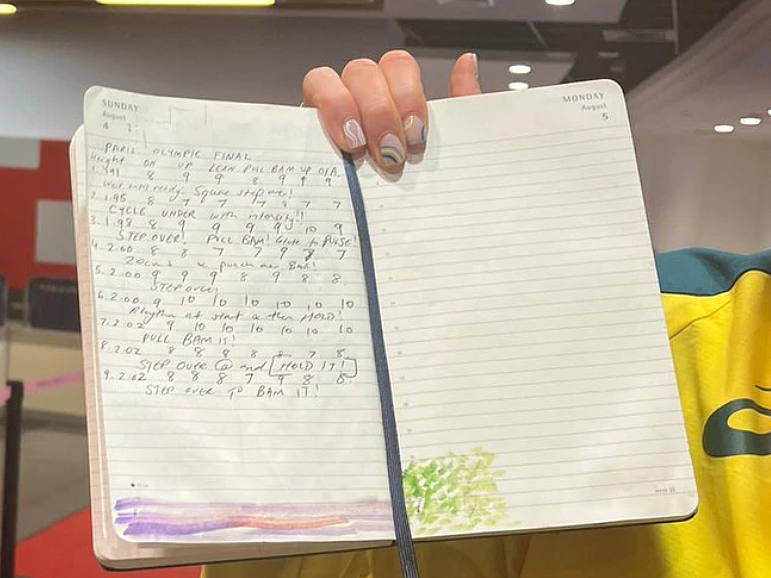 SUNDAY
August
4
PARIS OLYMPIC FINAL
Height ON UP LEAN PUL BAM UP O/A
1. 1.91 8 9 9 8 9 9 9
ready! Square step over!
2. 1.95 8 7 7 7 8 7 7
CYCLE UNDER with intensity!!
3. 1.98 8 9 9 9 9 10 9
STEP OVER! PULL BAM! Glute to PULSE!
4. 2.00 8 8 7 7 9 8 7
5. 2.00 9 9 9 8 9 8 8
STEP over!
6. 2.00 9 10 10 10 10 10 10
Rhythm at start & then HOLD!
7. 2.02 9 10 10 10 10 10 10
PULL BAM IT!
8. 2.02 8 8 8 8 8 7 8
STEP OVER @ and HOLD IT!
9. 2.02 8 8 8 7 9 8 8
STEP OVER TO BAM IT!
MONDAY
August
5